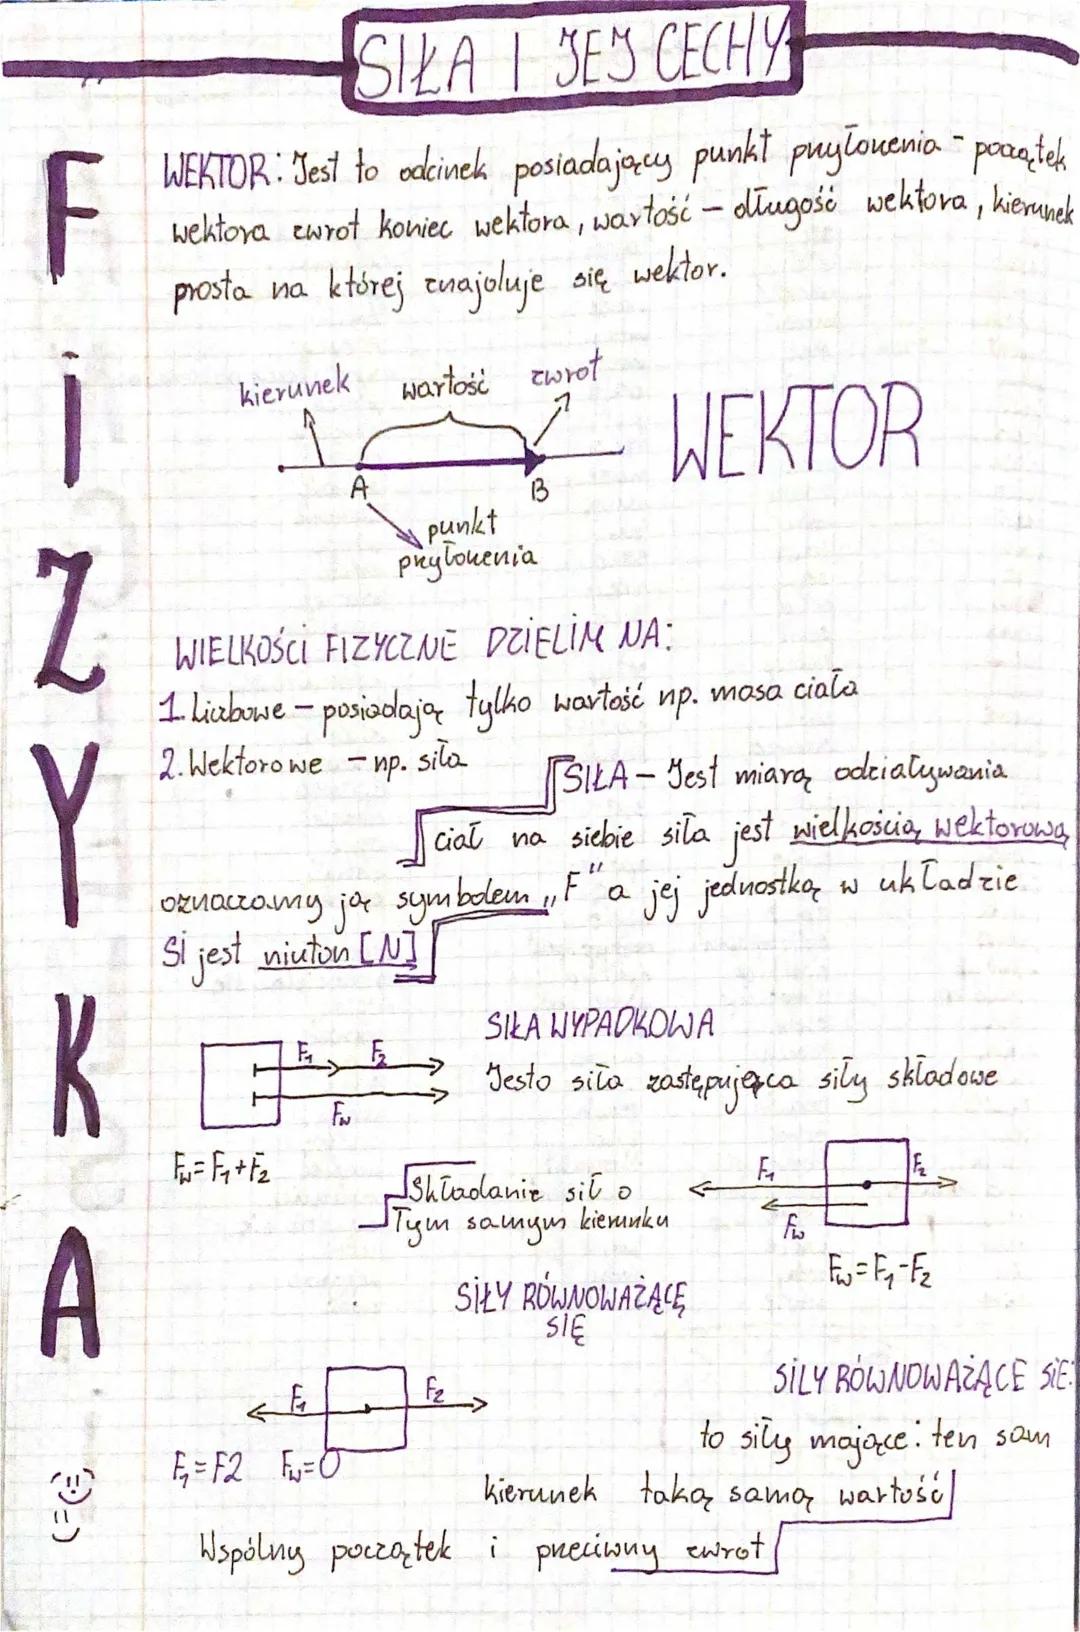 SIŁA I JEJ CECHY
FiZYKA
WEKTOR: Jest to odcinek posiadający punkt przyłożenia - początek
wektora zwrot koniec wektora, wartość - długość wektora, kierunek
prosta na której znajduje się wektor.
kierunek wartość zwrot
WEKTOR
A B
punkt
przyłożenia
WIELKOŚCi FIZYCZNE DZiELIM NA:
1. Liczbowe - posiadają tylko wartość np. masa ciała
2. Wektorowe - np. siła
SIŁA - Jest miarą odziaływania
ciał na siebie siła jest wielkością wektorową
oznaczamy ją symbolem „F" a jej jednostką w układzie
Si jest niuton [N]
SIŁA WYPADKOWA
F1 F2
Jesto siła zastępująca siły składowe
Fw
Fw=F1+F2
Składanie sił o
Tym samym kierunku
F1 F2
Fw
Fw=F1-F2
SiŁY RÓWNOWAŻĄCĘ
SIĘ
F1 F2
F1=F2 Fw=0
SiLY RÓWNOWAŻĄCE SiE:
to siły mające: ten sam
kierunek taką samą wartość
Wspólny początek i przeciwny zwrot